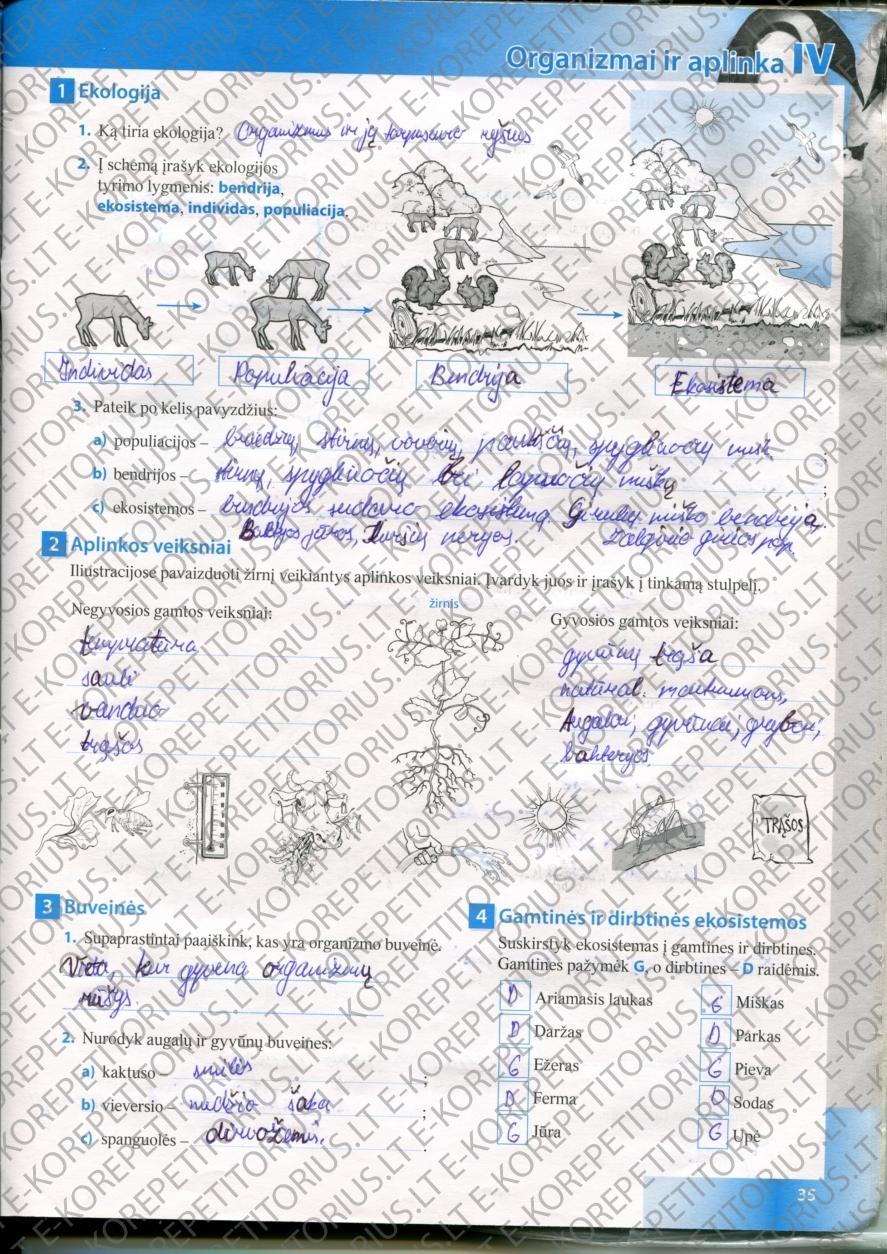 Organizmai ir aplinka IV
1 Ekologija
1. Ką tiria ekologija? Organizmus ir jų tarpusavio ryšius
2. Į schemą įrašyk ekologijos
tyrimo lygmenis: bendrija,
ekosistema, individas, populiacija.
Individas Populiacija Bendrija Ekosistema
3. Pateik po kelis pavyzdžius:
a) populiacijos – briedžių, stirnų, voverių, paukščių, spygliuočių mišk ;
b) bendrijos – stirnų, spygliuočių bei lapuočių miškų ;
c) ekosistemos – bendrijos sudaro ekosistemą. Girulių miško bendrija,
Baltijos jūros, Kuršių nerijos. Žalgirio girios pop
2 Aplinkos veiksniai
Iliustracijose pavaizduoti žirnį veikiantys aplinkos veiksniai. Įvardyk juos ir įrašyk į tinkamą stulpelį.
žirnis
Negyvosios gamtos veiksniai:
temperatūra
saulė
vanduo
trąšos
Gyvosios gamtos veiksniai:
gyvūnų trąša
natūral.
Augalai, gyvūnai, grybai,
bakterijos
TRĄŠOS
3 Buveinės
1. Supaprastintai paaiškink, kas yra organizmo buveinė.
Vieta, kur gyvena organizmų
rūšys.
2. Nurodyk augalų ir gyvūnų buveines:
a) kaktuso – smėlis ;
b) vieversio – medžio šaka ;
c) spanguolės – dirvožemis. .
4 Gamtinės ir dirbtinės ekosistemos
Suskirstyk ekosistemas į gamtines ir dirbtines.
Gamtines pažymėk G, o dirbtines – D raidėmis.
D Ariamasis laukas G Miškas
D Daržas D Parkas
G Ežeras G Pieva
D Ferma D Sodas
G Jūra G Upė
35
E-KOREPETITORIUS.LT